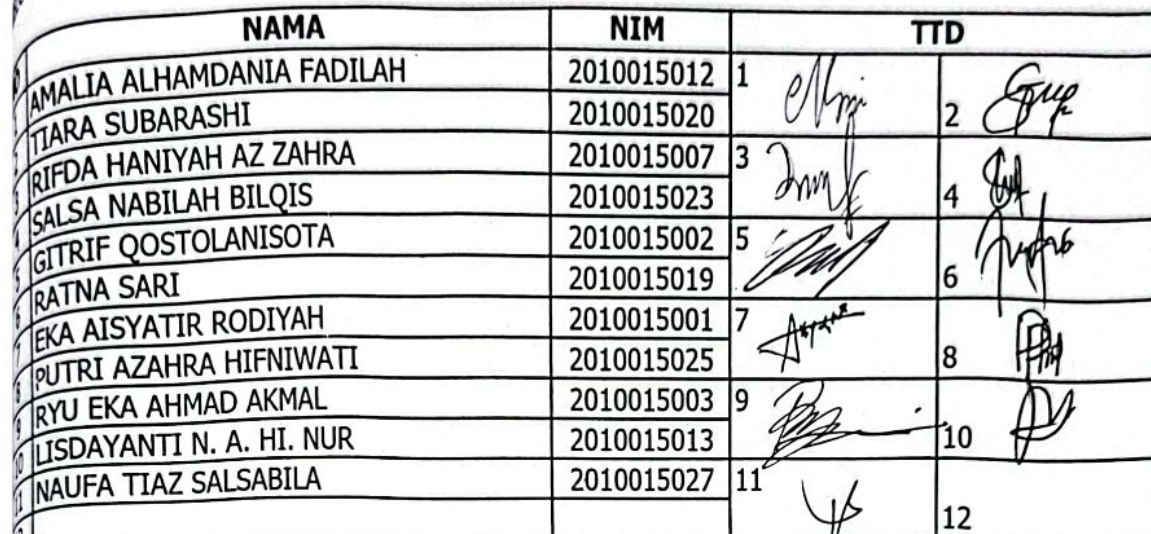 NAMA NIM TTD
1 AMALIA ALHAMDANIA FADILAH 2010015012 1
2 TIARA SUBARASHI 2010015020 2
3 RIFDA HANIYAH AZ ZAHRA 2010015007 3
4 SALSA NABILAH BILQIS 2010015023 4
5 GITRIF QOSTOLANISOTA 2010015002 5
6 RATNA SARI 2010015019 6
7 EKA AISYATIR RODIYAH 2010015001 7
8 PUTRI AZAHRA HIFNIWATI 2010015025 8
9 RYU EKA AHMAD AKMAL 2010015003 9
10 LISDAYANTI N. A. HI. NUR 2010015013 10
11 NAUFA TIAZ SALSABILA 2010015027 11
12